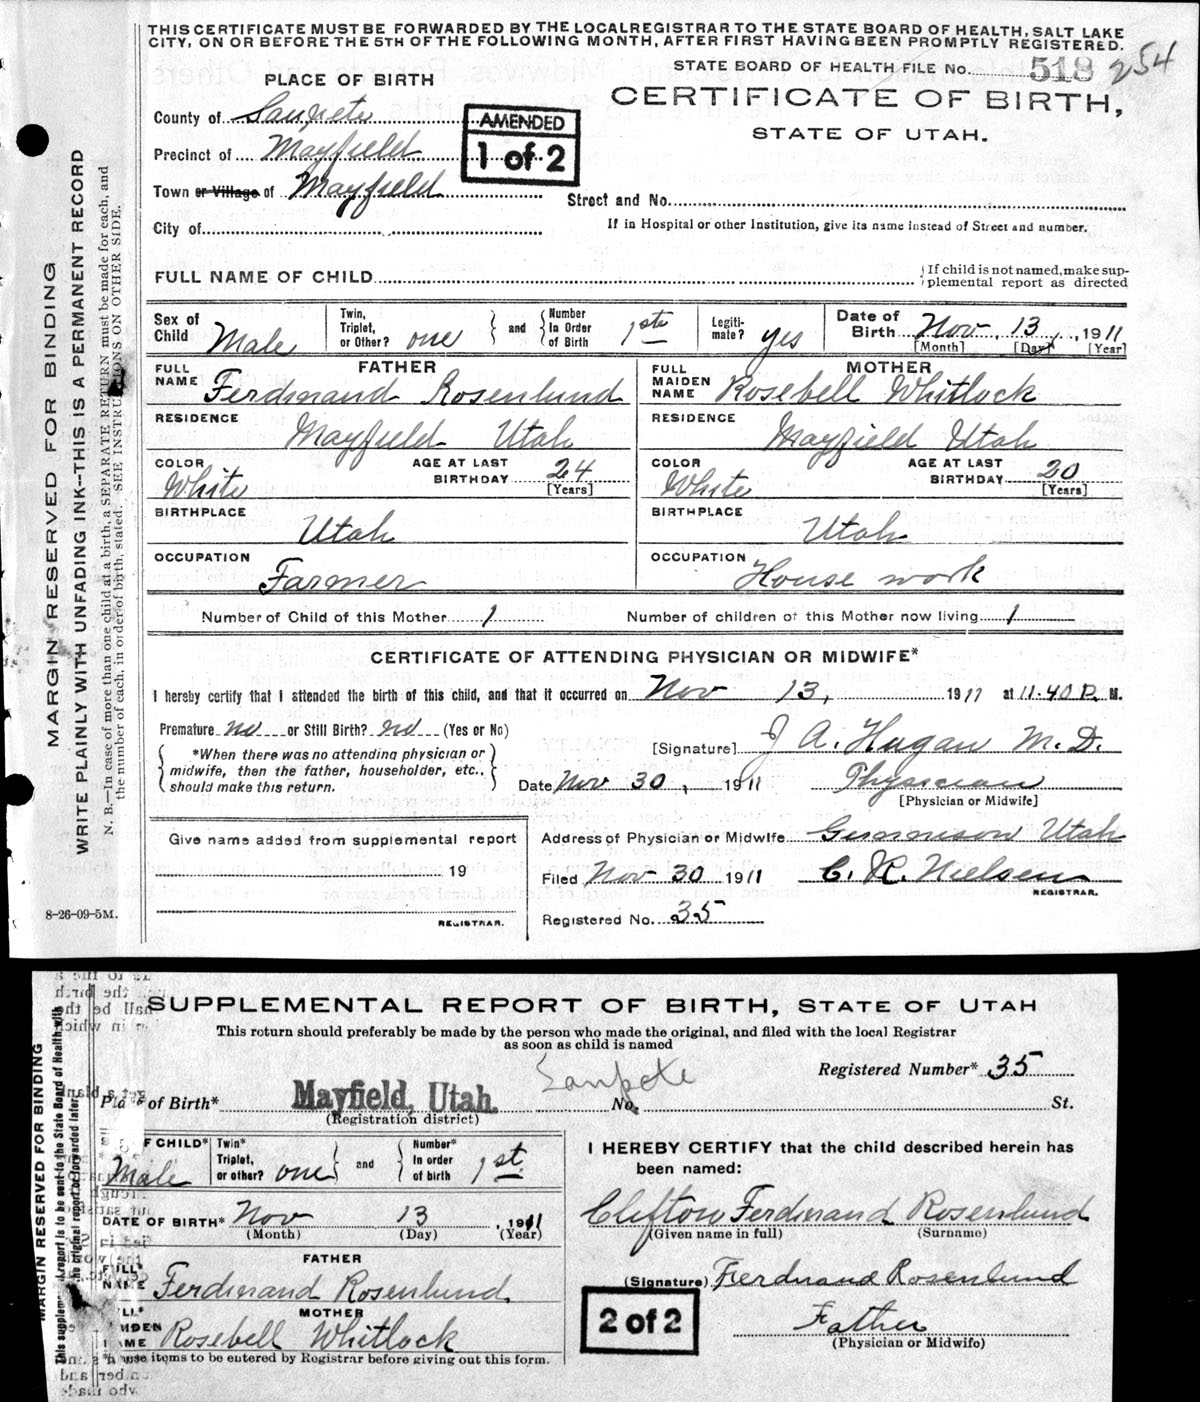 THIS CERTIFICATE MUST BE FORWARDED BY THE LOCAL REGISTRAR TO THE STATE BOARD OF HEALTH, SALT LAKE
CITY, ON OR BEFORE THE 5TH OF THE FOLLOWING MONTH, AFTER FIRST HAVING BEEN PROMPTLY REGISTERED.
STATE BOARD OF HEALTH FILE No. 518 254
PLACE OF BIRTH
CERTIFICATE OF BIRTH,
STATE OF UTAH.
County of Sanpete
AMENDED
1 of 2
Precinct of Mayfield
Town or Village of Mayfield
Street and No.
City of
If in Hospital or other Institution, give its name instead of Street and number.
FULL NAME OF CHILD
If child is not named, make sup-
plemental report as directed
Sex of Child Male
Twin, Triplet, or Other? one
and Number In Order of Birth 1st
Legiti-mate? yes
Date of Birth Nov, 13, 1911
[Month] [Day] [Year]
FATHER
FULL NAME Ferdinand Rosenlund
MOTHER
FULL MAIDEN NAME Rosebell Whitlock
RESIDENCE Mayfield Utah
RESIDENCE Mayfield Utah
COLOR White
AGE AT LAST BIRTHDAY 24 [Years]
COLOR White
AGE AT LAST BIRTHDAY 20 [Years]
BIRTHPLACE Utah
BIRTHPLACE Utah
OCCUPATION Farmer
OCCUPATION House work
Number of Child of this Mother 1
Number of children of this Mother now living 1
CERTIFICATE OF ATTENDING PHYSICIAN OR MIDWIFE*
I hereby certify that I attended the birth of this child, and that it occurred on Nov 13, 1911 at 11.40 P. M.
Premature no or Still Birth? no (Yes or No)
[Signature] J A. Hagan M.D.
*When there was no attending physician or
midwife, then the father, householder, etc.,
should make this return.
Date Nov 30, 1911 Physician
[Physician or Midwife]
Give name added from supplemental report
19
REGISTRAR.
Address of Physician or Midwife Gunnison Utah
Filed Nov 30 1911 C. R. Nielsen
REGISTRAR.
Registered No. 35
8-26-09-5M.
MARGIN RESERVED FOR BINDING
WRITE PLAINLY WITH UNFADING INK--THIS IS A PERMANENT RECORD
N. B.--In case of more than one child at a birth, a SEPARATE RETURN must be made for each, and
the number of each, in order of birth, stated. SEE INSTRUCTIONS ON OTHER SIDE.
SUPPLEMENTAL REPORT OF BIRTH, STATE OF UTAH
This return should preferably be made by the person who made the original, and filed with the local Registrar
as soon as child is named
Sanpete
Registered Number* 35
Place of Birth* Mayfield, Utah. No. St.
(Registration district)
OF CHILD* Male
Twin* Triplet, or other? one
and Number* In order of birth 1st
I HEREBY CERTIFY that the child described herein has
been named:
DATE OF BIRTH* Nov 13, 1911
(Month) (Day) (Year)
Clifton Ferdinand Rosenlund
(Given name in full) (Surname)
FATHER
FULL* NAME Ferdinand Rosenlund
(Signature) Ferdinand Rosenlund
MOTHER
NAME Rosebell Whitlock
2 of 2
Father
(Physician or Midwife)
items to be entered by Registrar before giving out this form.
MARGIN RESERVED FOR BINDING